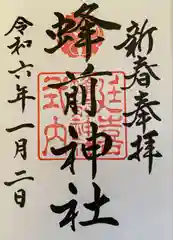 新春奉拝
蜂前神社
令和六年一月二日
延喜
式内